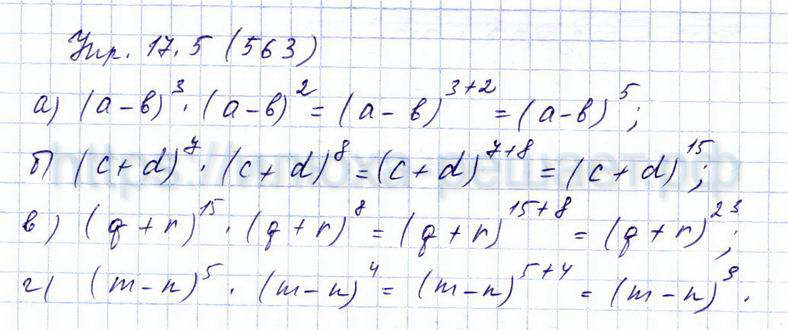 Упр. 17.5 (563)
а) (a-b)³ · (a-b)² = (a-b)³⁺² = (a-b)⁵;
б) (c+d)⁷ · (c+d)⁸ = (c+d)⁷⁺⁸ = (c+d)¹⁵;
в) (q+r)¹⁵ · (q+r)⁸ = (q+r)¹⁵⁺⁸ = (q+r)²³;
г) (m-n)⁵ · (m-n)⁴ = (m-n)⁵⁺⁴ = (m-n)⁹.